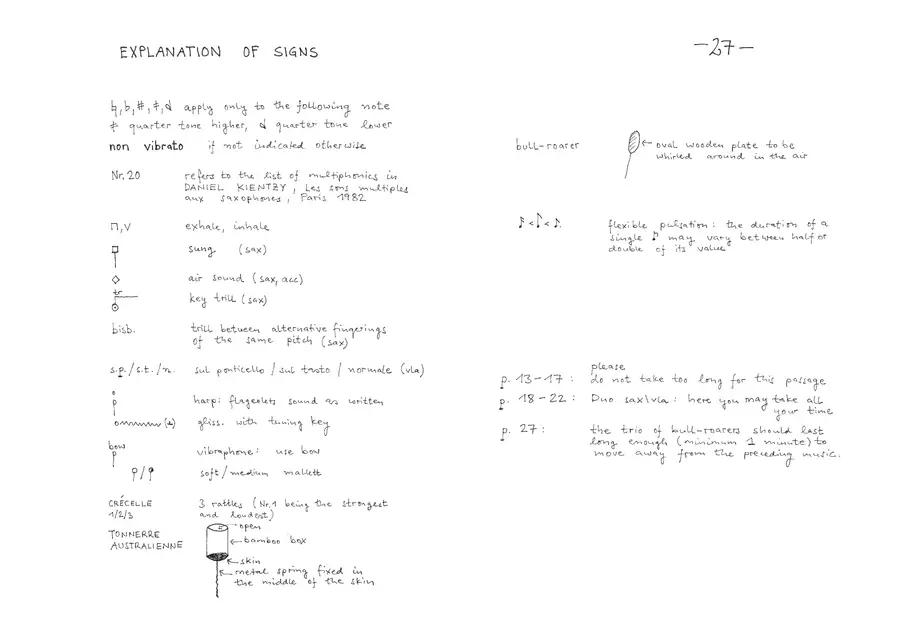 EXPLANATION OF SIGNS
♮, ♭, ♯, ‡, d apply only to the following note
‡ quarter tone higher, d quarter tone lower
non vibrato if not indicated otherwise
Nr. 20 refers to the list of multiphonics in
DANIEL KIENTZY, Les sons multiples
aux saxophones, Paris 1982
⊓, V exhale, inhale
sung (sax)
◇ air sound (sax, acc)
tr key trill (sax)
bisb. trill between alternative fingerings
of the same pitch (sax)
s.p./s.t./n. sul ponticello / sul tasto / normale (vla)
harp: flageolets sound as written
gliss. with tuning key
bow vibraphone: use bow
soft/medium mallett
CRÉCELLE 3 rattles (Nr.1 being the strongest
1/2/3 and loudest)
TONNERRE
AUSTRALIENNE
open
bamboo box
skin
metal spring fixed in
the middle of the skin
-27-
bull-roarer oval wooden plate to be
whirled around in the air
♪ < ♪ < ♪. flexible pulsation: the duration of a
single ♪ may vary between half or
double of its value
please
p. 13-17: do not take too long for this passage
p. 18-22: Duo sax\vla: here you may take all
your time
p. 27: the trio of bull-roarers should last
long enough (minimum 1 minute) to
move away from the preceding music.